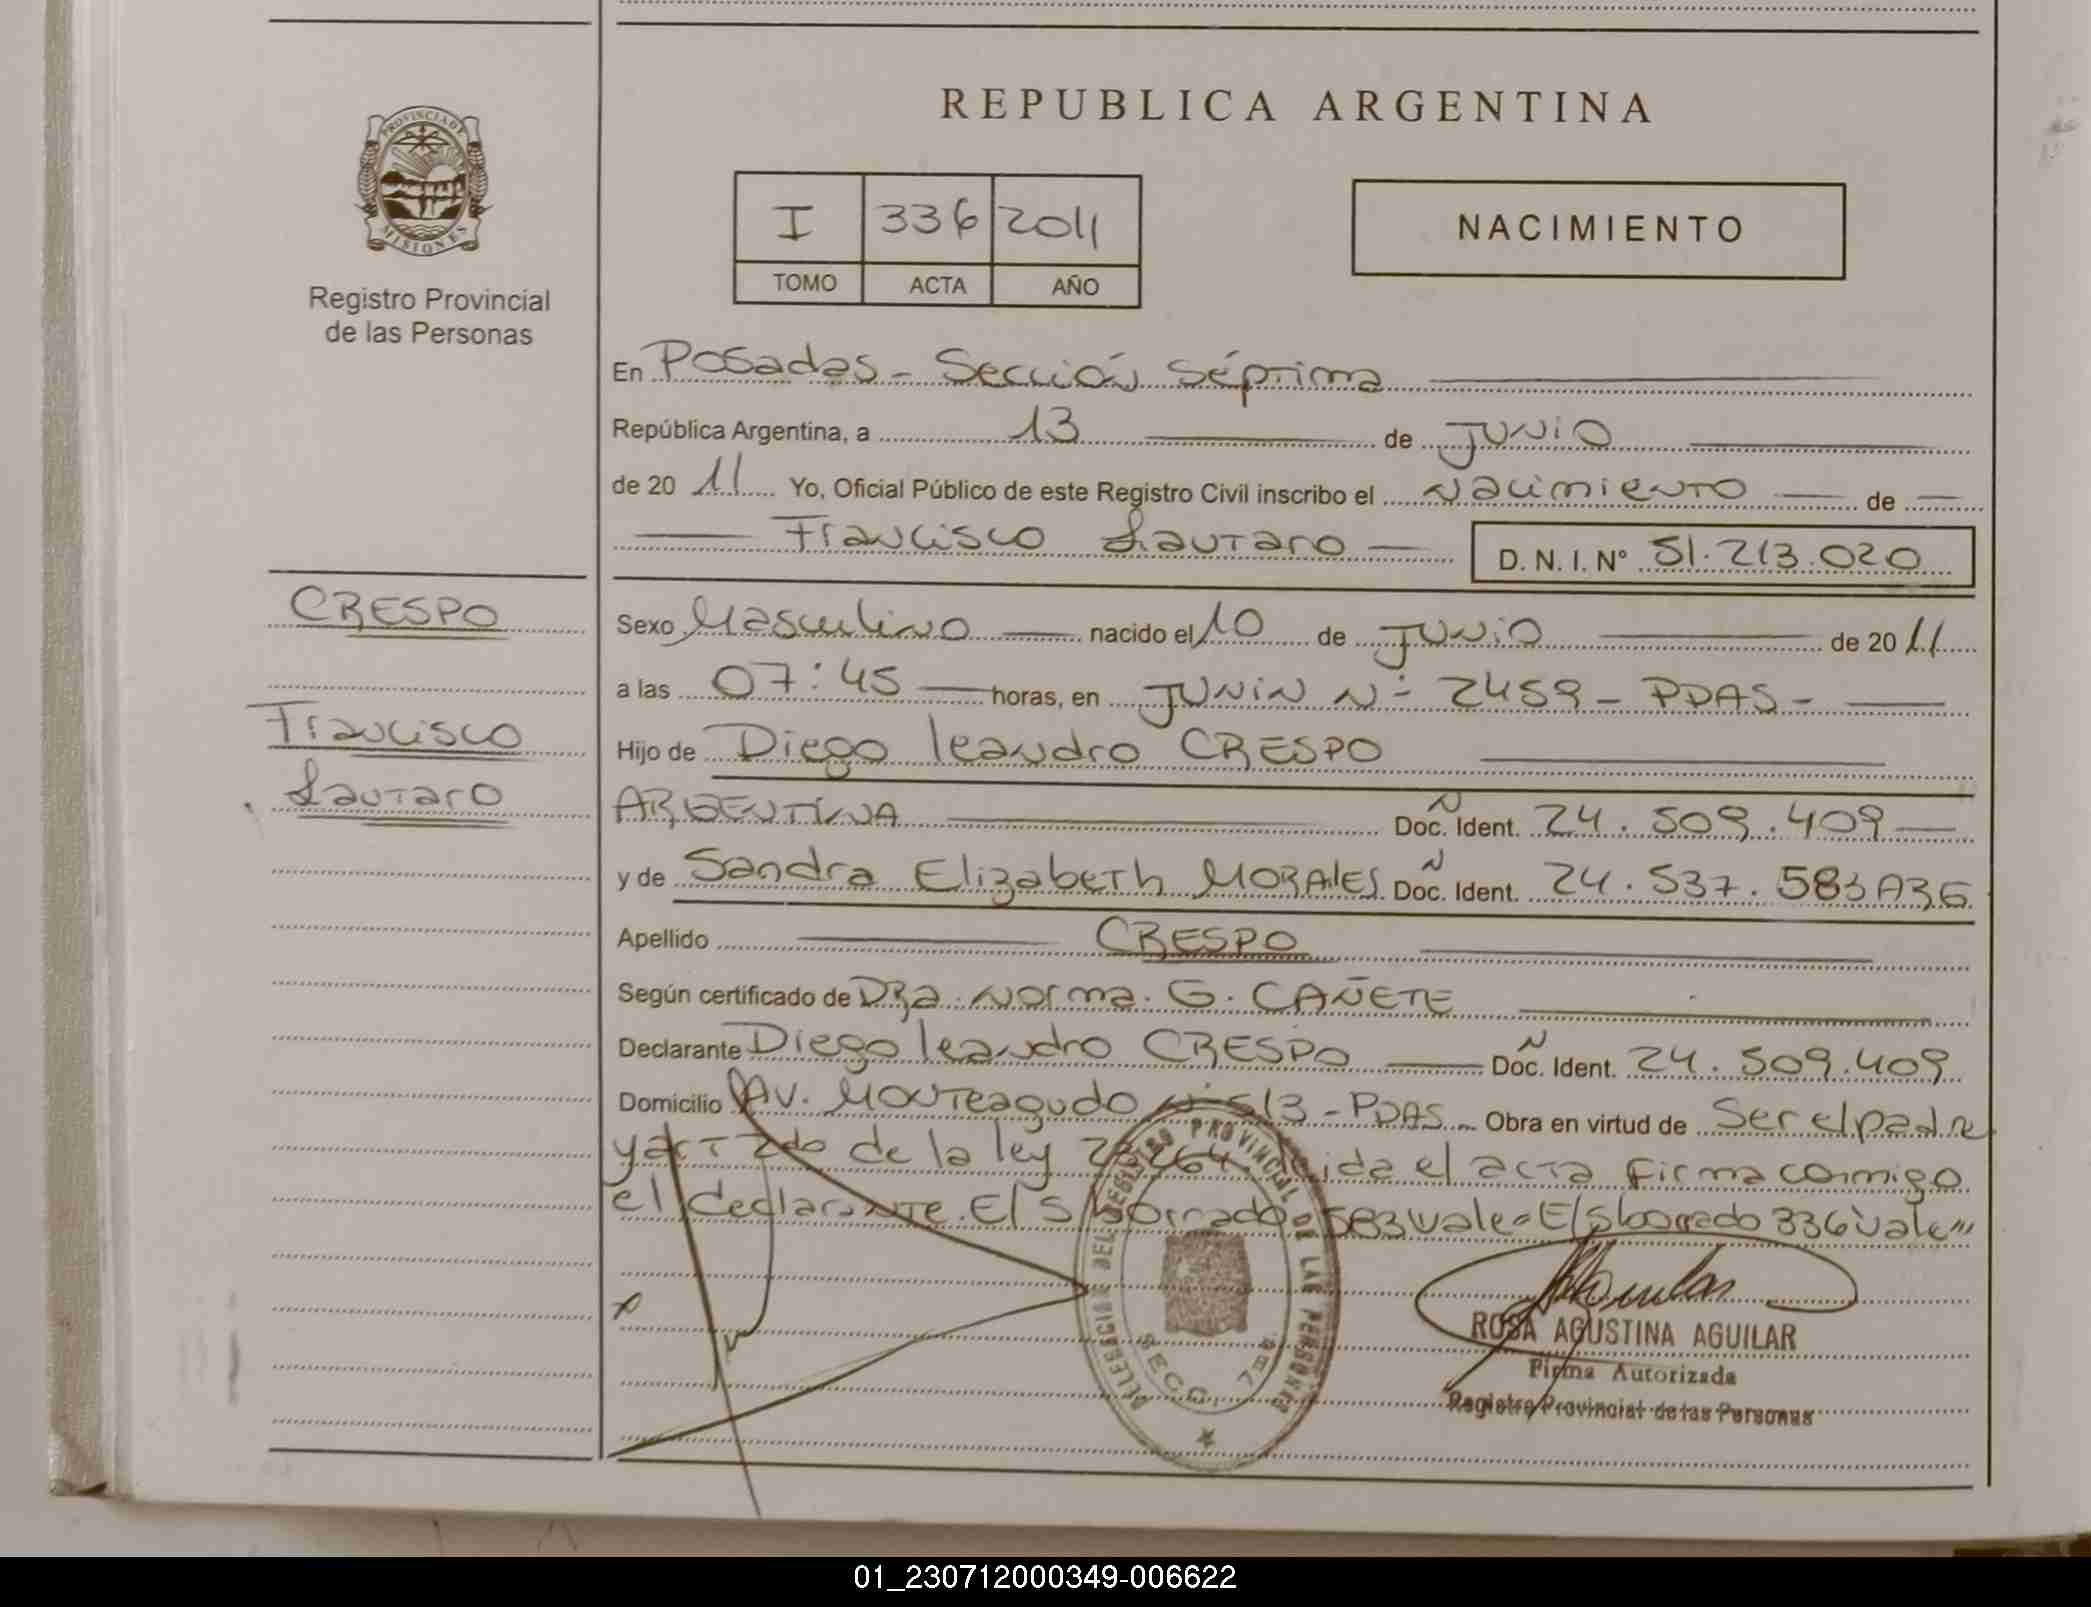 REPUBLICA ARGENTINA
PROVINCIA DE
MISIONES
Registro Provincial
de las Personas
I 336 2011
TOMO ACTA AÑO
NACIMIENTO
En Posadas - Sección Séptima
República Argentina, a 13 de JUNIO
de 20 11 Yo, Oficial Público de este Registro Civil inscribo el Nacimiento de
Francisco Lautaro D. N. I. N° 51.213.020
CRESPO
Francisco
Lautaro
Sexo Masculino nacido el 10 de JUNIO de 20 11
a las 07:45 horas, en JUNIN N° 2459 - PDAS -
Hijo de Diego leandro CRESPO
ARGENTINA Doc. Ident. 24.509.409
y de Sandra Elizabeth MORALES Doc. Ident. 24.537.583 ARG
Apellido CRESPO
Según certificado de DRa. Norma. G. CAÑETE
Declarante Diego leandro CRESPO Doc. Ident. 24.509.409
Domicilio AV. Monteagudo N° 513 - PDAS - Obra en virtud de Ser el padre
y art 2do de la ley 23264 leida el acta firma conmigo
el declarante. El S/borrado 583 Vale = El S/borrado 336 Vale
DELEGACION DEL REGISTRO PROVINCIAL DE LAS PERSONAS
SECC. 7ma
ROSA AGUSTINA AGUILAR
Firma Autorizada
Registro Provincial de las Personas
01_230712000349-006622